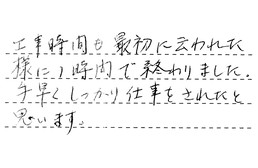 工事時間も最初に云われた
様に1時間で終わりました.
手早くしっかり仕事をされたと
思います。